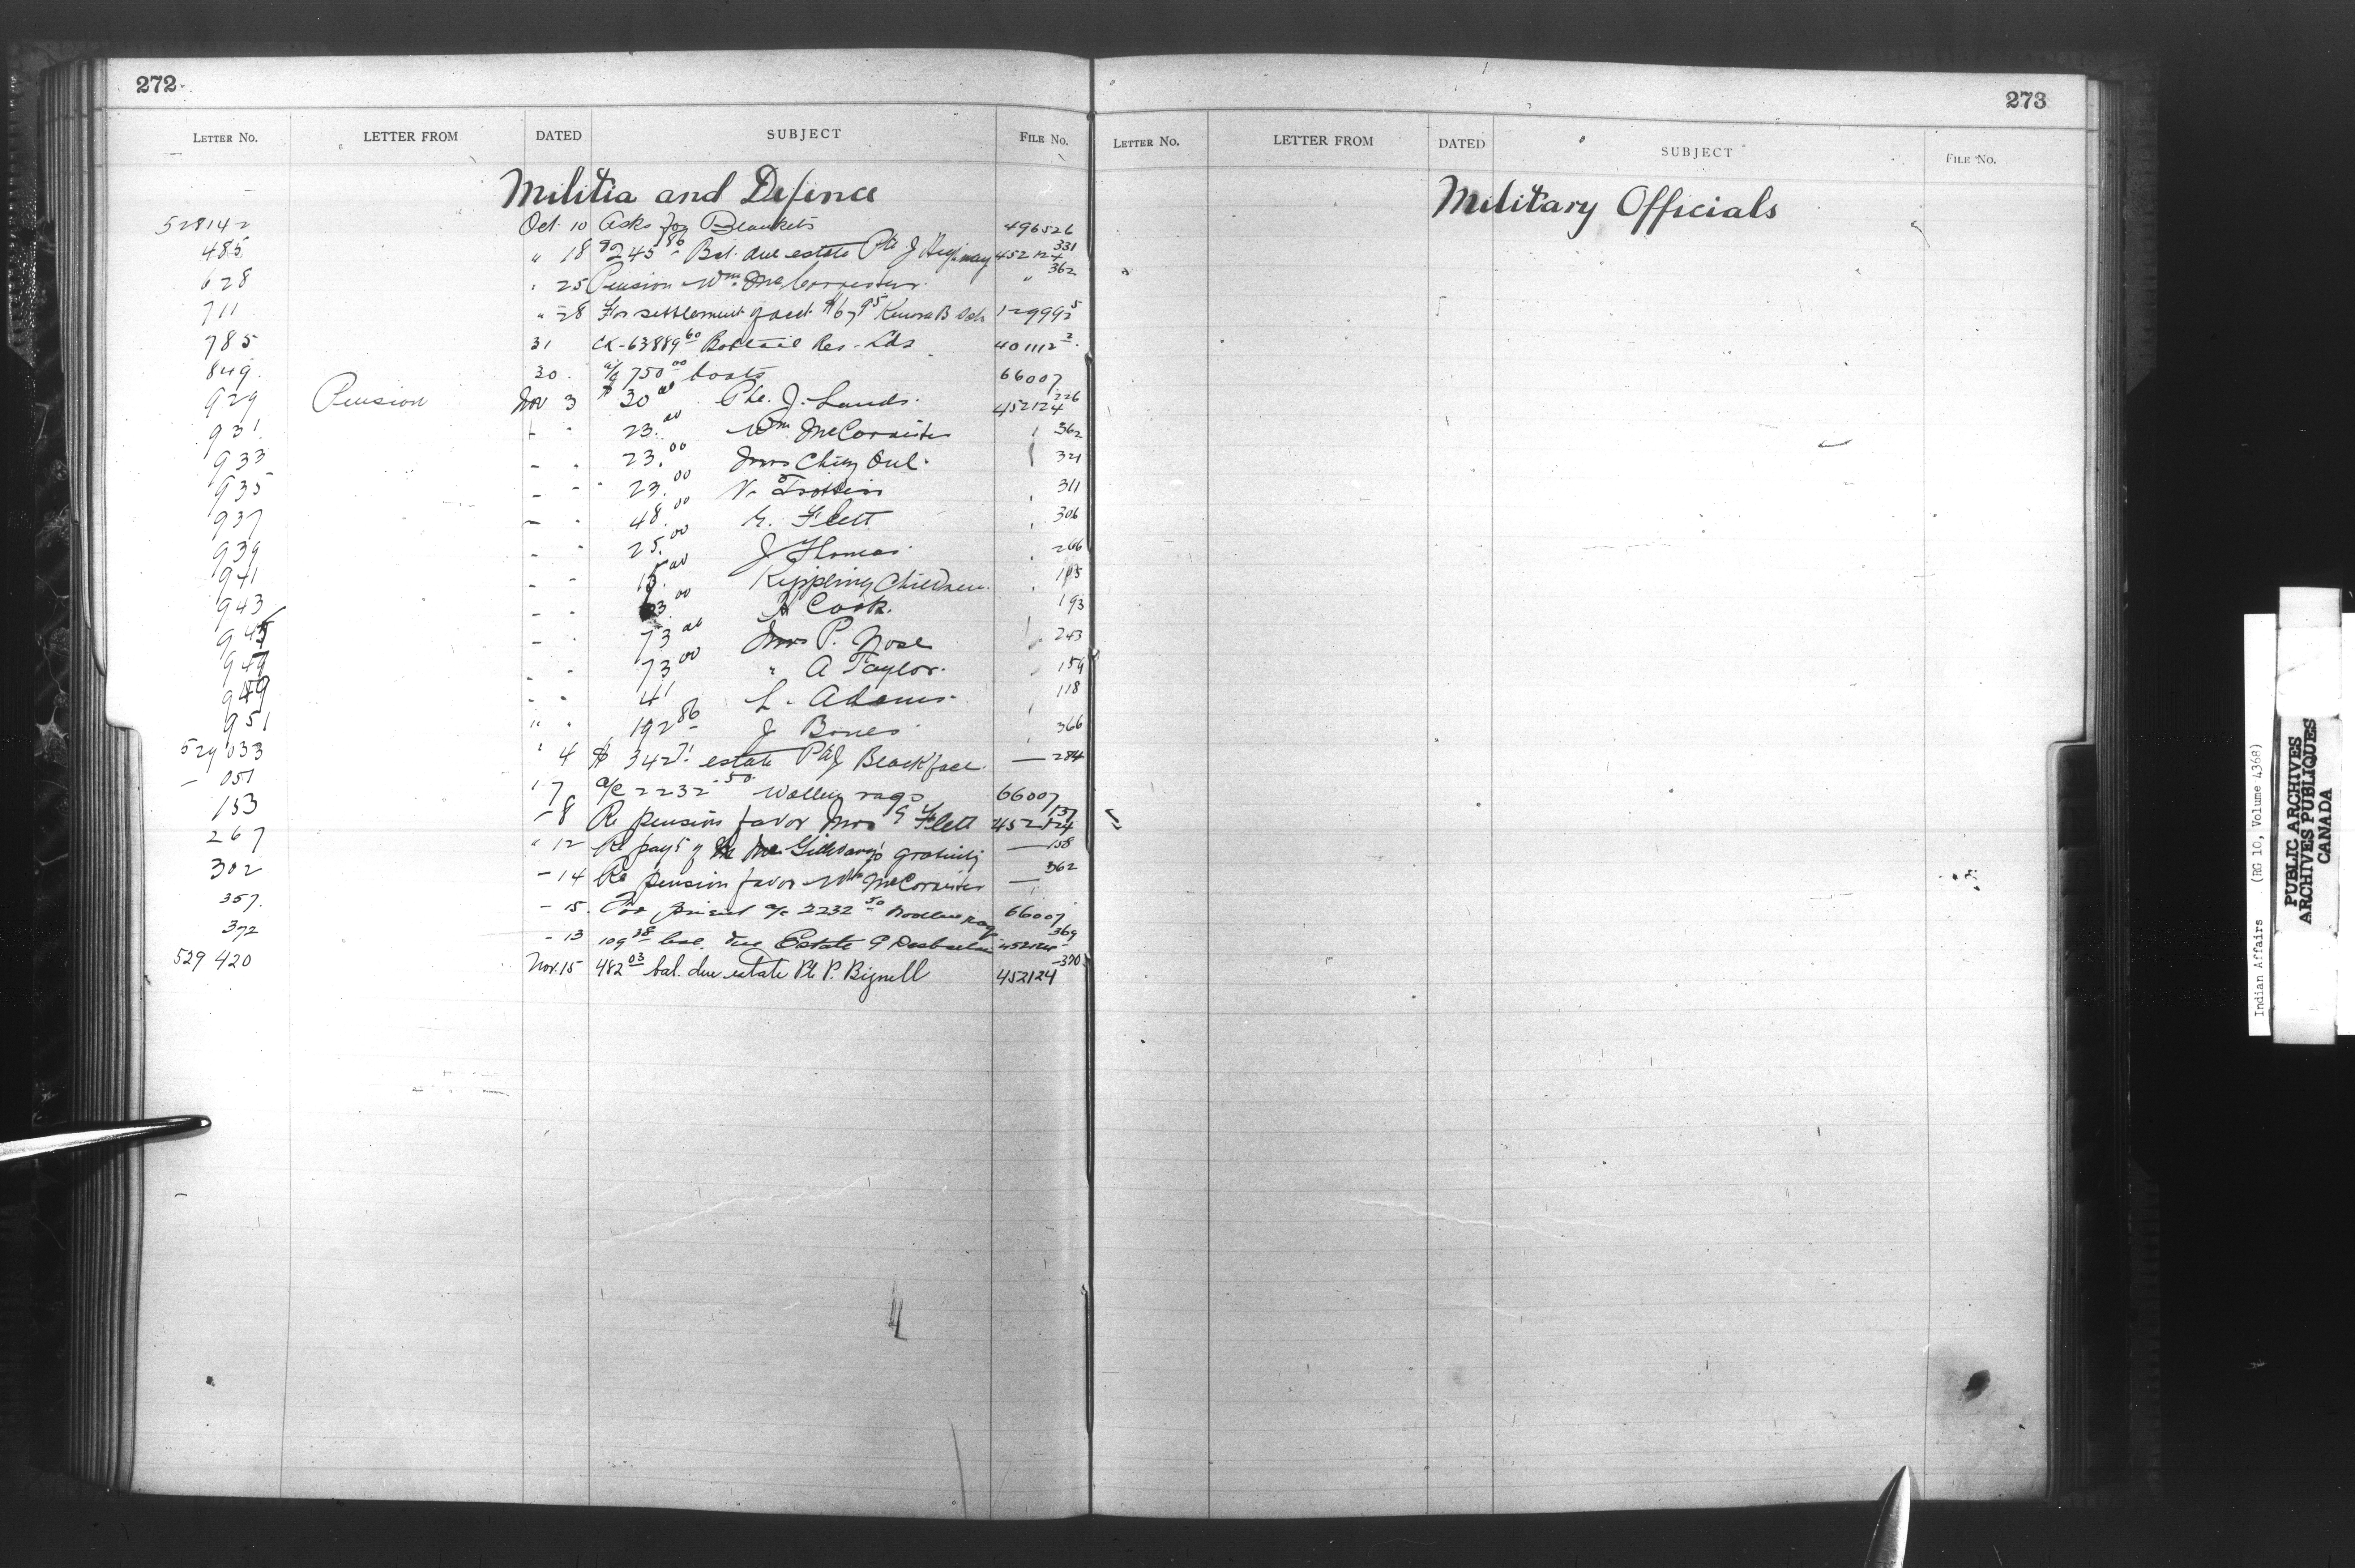 272
LETTER NO. LETTER FROM DATED SUBJECT FILE NO.
Militia and Defence
528142 Oct. 10 Asks for Blankets 496526
485 " 18 $245 86 Bal. due estate Pte J 452124 331
628 " 25 Pension Wm. " 362
711 " 28 For settlement of acct. Kenora B 129992 5
785 31 CK-63889 60 Bobtail Res - Lds 401112 2
849 30 a/c 750 00 boots 66007
929 Pension Nov 3 $ 30 00 Pte. J. Lands. 452124 226
931 23. 00 Wm McCorrister 362
933 23. 00 Mrs 321
935 23. 00 311
937 48. 00 G. Flett 306
939 25. 00 J Thomas 266
941 15. 00 Kippling Children
943 00 H Cook. 193
945 73 00 Mrs P. Nose 243
947 73 00 " A Taylor. 159
949 41 L. Adams. 118
951 " 192 86 J Bones 366
529 033 " 4 $ 342 71 estate Pte J Blackface. — 284
— 051 " 7 a/c 2232 50 rags 66007
153 - 8 Re pension favor Mrs G Flett 452124 137
267 " 12 Re payt of gratuity — 158
302 - 14 Re pension favor Wm McCorrister — 362
357. - 15. a/c 2232 50 66007
372 - 13 109 38 bal. due Estate P 452124 369
529 420 Nov. 15 482 03 bal. due estate Pte P. Bignell 452124 -370
273
LETTER NO. LETTER FROM DATED SUBJECT FILE NO.
Military Officials
Indian Affairs (RG 10, Volume 4368)
PUBLIC ARCHIVES
ARCHIVES PUBLIQUES
CANADA